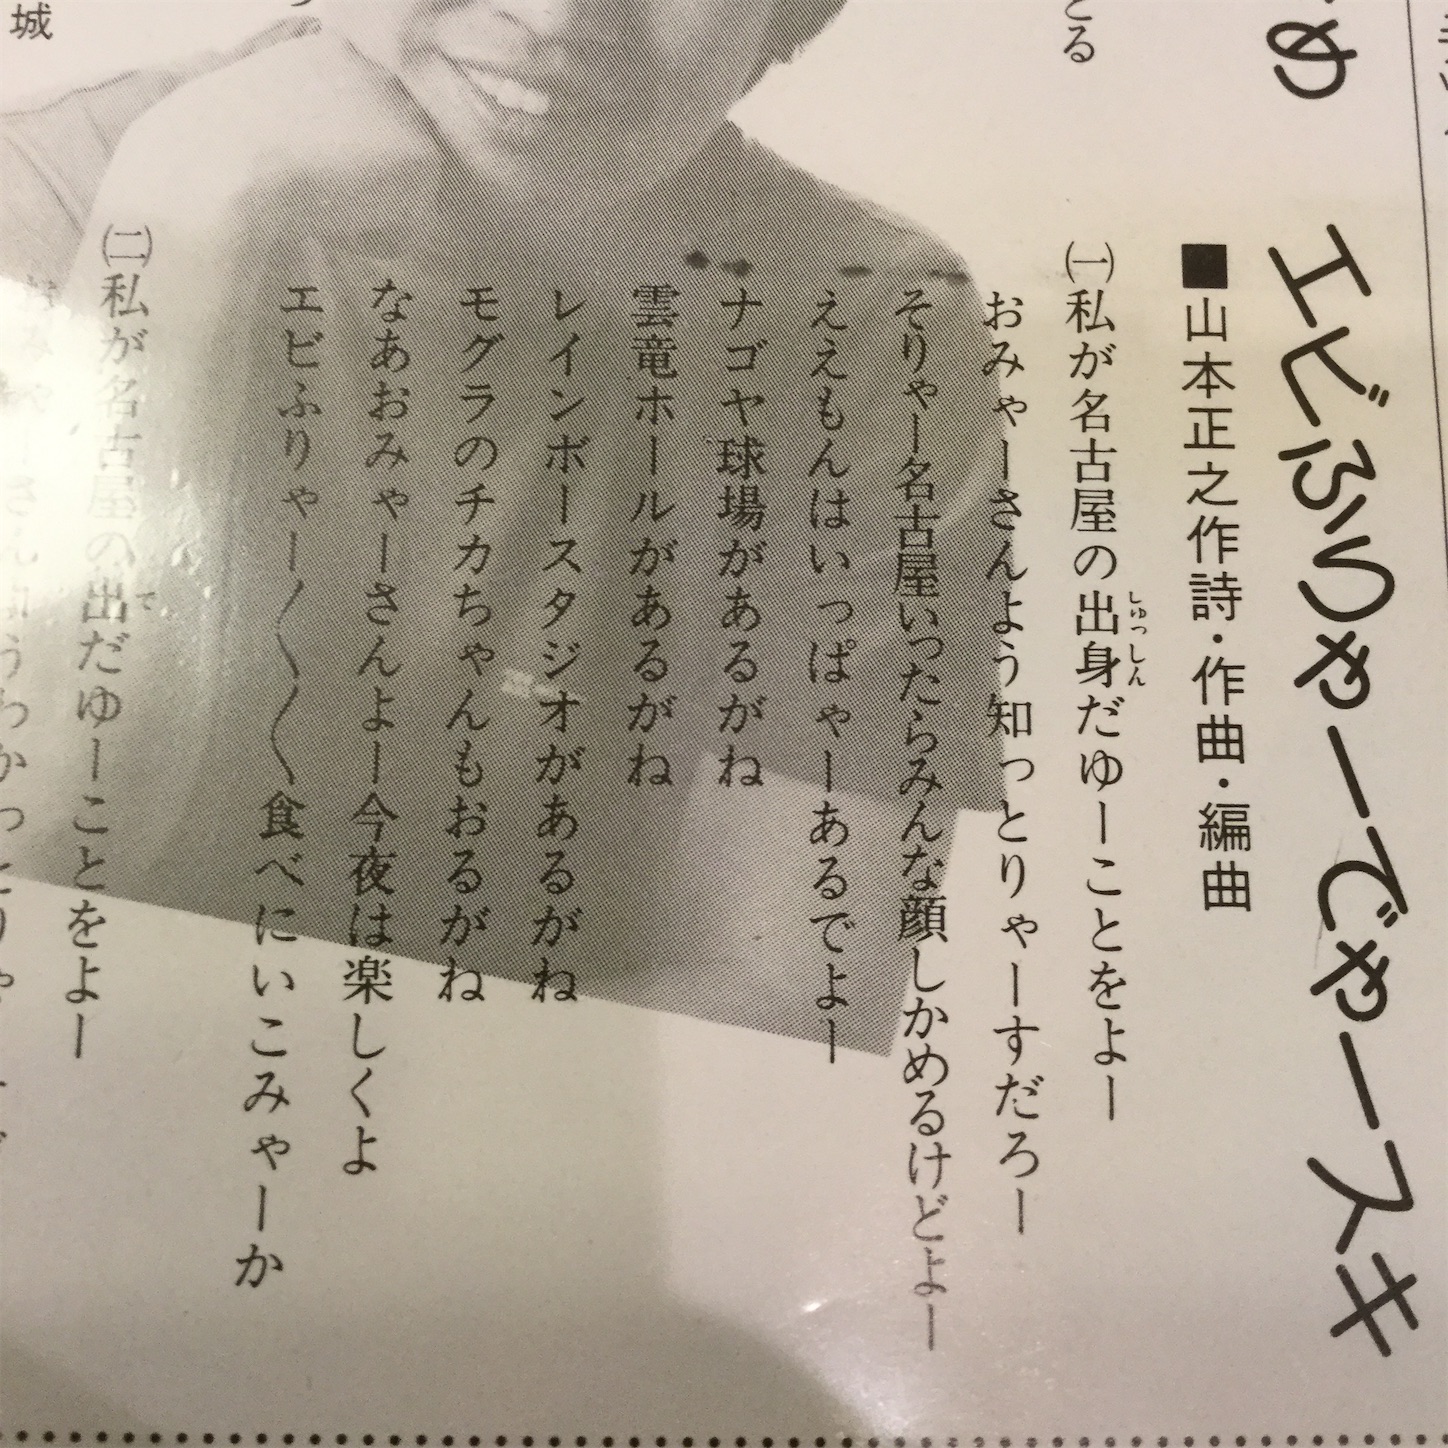 エビふりゃーでゃースキ
■山本正之作詩・作曲・編曲
㈠私が名古屋の出身だゆーことをよー
しゅっしん
おみゃーさんよう知っとりゃーすだろー
そりゃー名古屋いったらみんな顔しかめるけどよー
ええもんはいっぱゃーあるでよー
ナゴヤ球場があるがね
雲竜ホールがあるがね
レインボースタジオがあるがね
モグラのチカちゃんもおるがね
なあおみゃーさんよー今夜は楽しくよ
エビふりゃー〳〵〳〵食べにいこみゃーか
㈡私が名古屋の出だゆーことをよー
で
城
とる
め